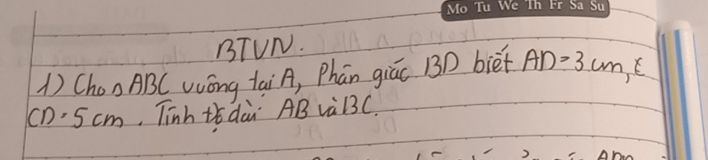 Mo Tu We Th Fr Sa Su
BTVN.
1) Cho △ ABC vuông tại A, Phân giác BD biết AD = 3 cm,
CD = 5 cm. Tính dài AB và BC.